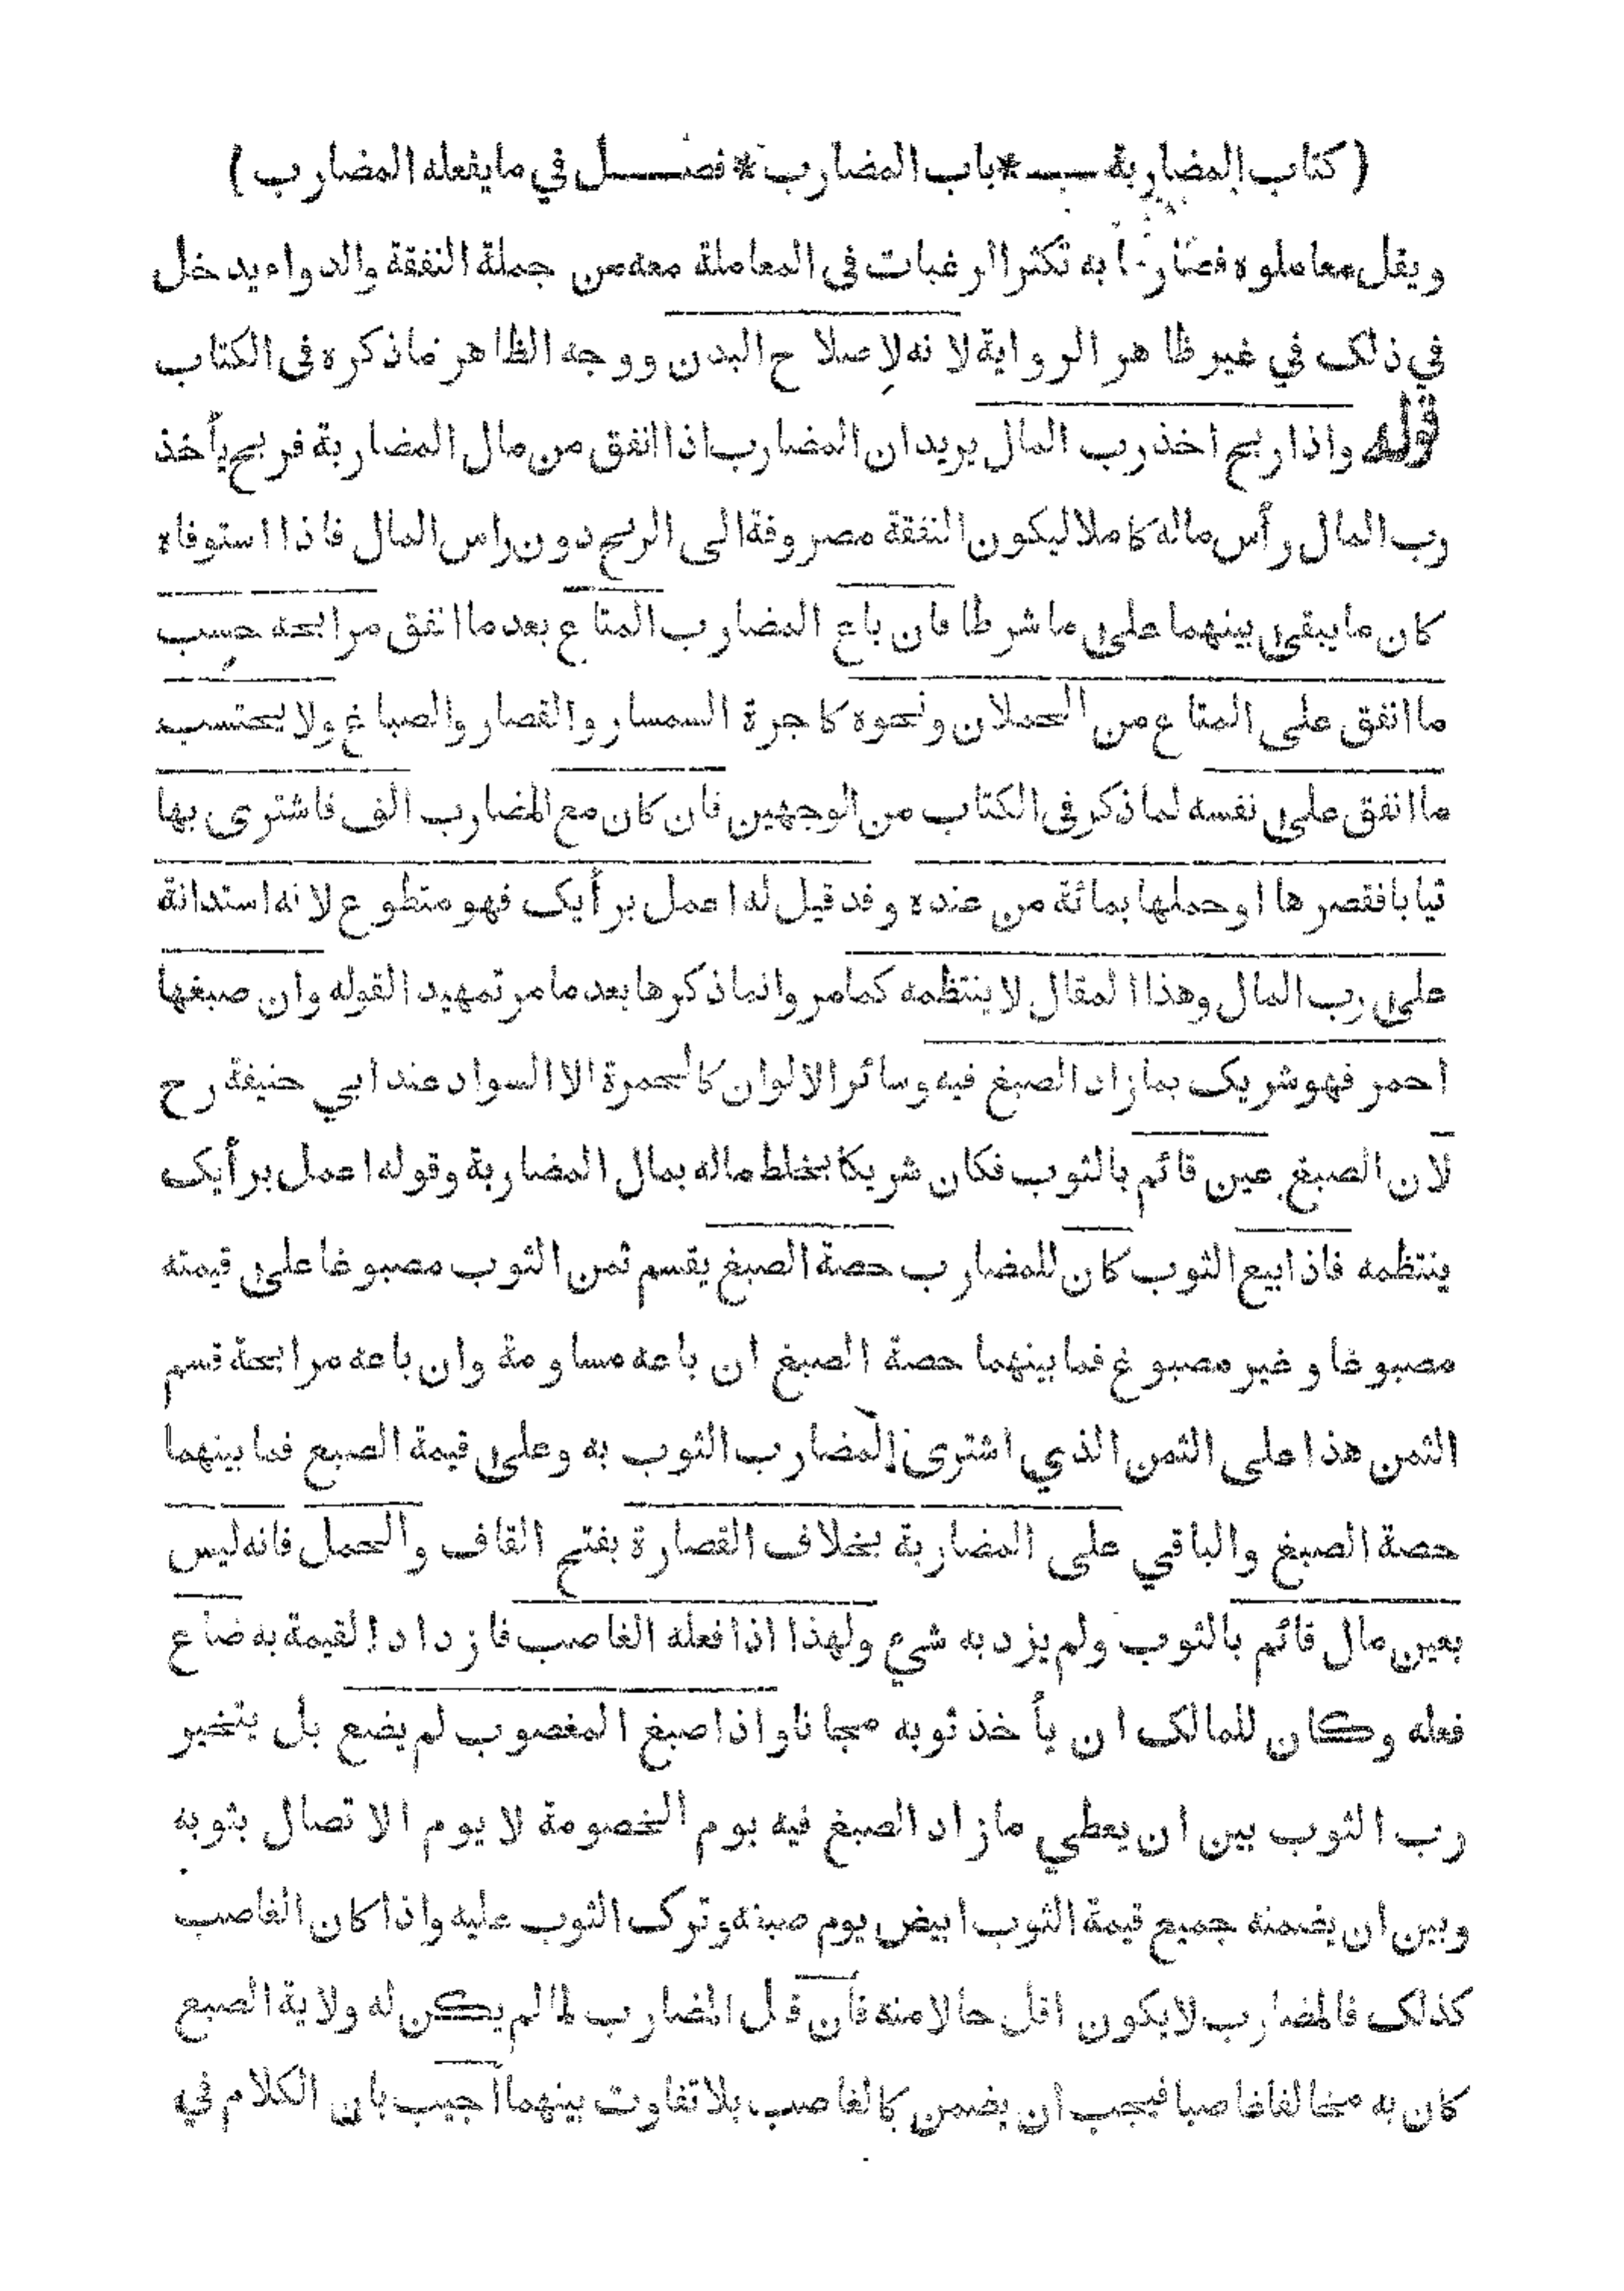 ( كتاب المضاربة ـــ * باب المضارب * فصـــل في ما يفعله المضارب )
ويقل معاملوه فصار ما به تكثر الرغبات فى المعاملة معه من جملة النفقة والدواء يدخل
في ذلك في غير ظاهر الرواية لانه لاصلاح البدن ووجه الظاهر ماذكره فى الكتاب
قوله واذا ربح اخذ رب المال يريد ان المضارب اذا انفق من مال المضاربة فربح يأخذ
رب المال رأس ماله كاملا ليكون النفقة مصروفة الى الربح دون راس المال فاذا استوفاه
كان ما يبقى بينهما على ما شرطا فان باع المضارب المتاع بعد ما انفق مرابحه حسب
ما انفق على المتاع من الحملان ونحوه كاجرة السمسار والقصار والصباغ ولا يحتسب
ما انفق على نفسه لما ذكر فى الكتاب من الوجهين فان كان مع المضارب الف فاشترى بها
ثيابا فقصرها او حملها بمائة من عنده وقد قيل له اعمل برأيك فهو متطوع لانه استدانة
على رب المال وهذا المقال لا ينتظمه كما مر وانما ذكرها بعد ما مر تمهيد القوله وان صبغها
احمر فهو شريك بما زاد الصبغ فيه وسائر الالوان كالحمرة الا السواد عند ابي حنيفة رح
لان الصبغ عين قائم بالثوب فكان شريكا بخلط ماله بمال المضاربة وقوله اعمل برأيك
ينتظمه فاذا بيع الثوب كان للمضارب حصة الصبغ يقسم ثمن الثوب مصبوغا على قيمته
مصبوغا وغير مصبوغ فما بينهما حصة الصبغ ان باعه مساومة وان باعه مرابحة قسم
الثمن هذا على الثمن الذي اشترى المضارب الثوب به وعلى قيمة الصبع فما بينهما
حصة الصبغ والباقي على المضاربة بخلاف القصارة بفتح القاف والحمل فانه ليس
بعين مال قائم بالثوب ولم يزد به شيء ولهذا اذا فعله الغاصب فازداد القيمة به ضاع
فعله وكان للمالك ان يأخذ ثوبه مجانا واذا صبغ المغصوب لم يضع بل يتخير
رب الثوب بين ان يعطي ما زاد الصبغ فيه يوم الخصومة لا يوم الاتصال بثوبه
وبين ان يضمنه جميع قيمة الثوب ابيض يوم صبغه وترك الثوب عليه واذا كان الغاصب
كذلك فالمضارب لا يكون اقل حالا منه فان قيل المضارب لما لم يكن له ولاية الصبع
كان به مخالفا غاصبا فيجب ان يضمن كالغاصب بلا تفاوت بينهما اجيب بان الكلام في